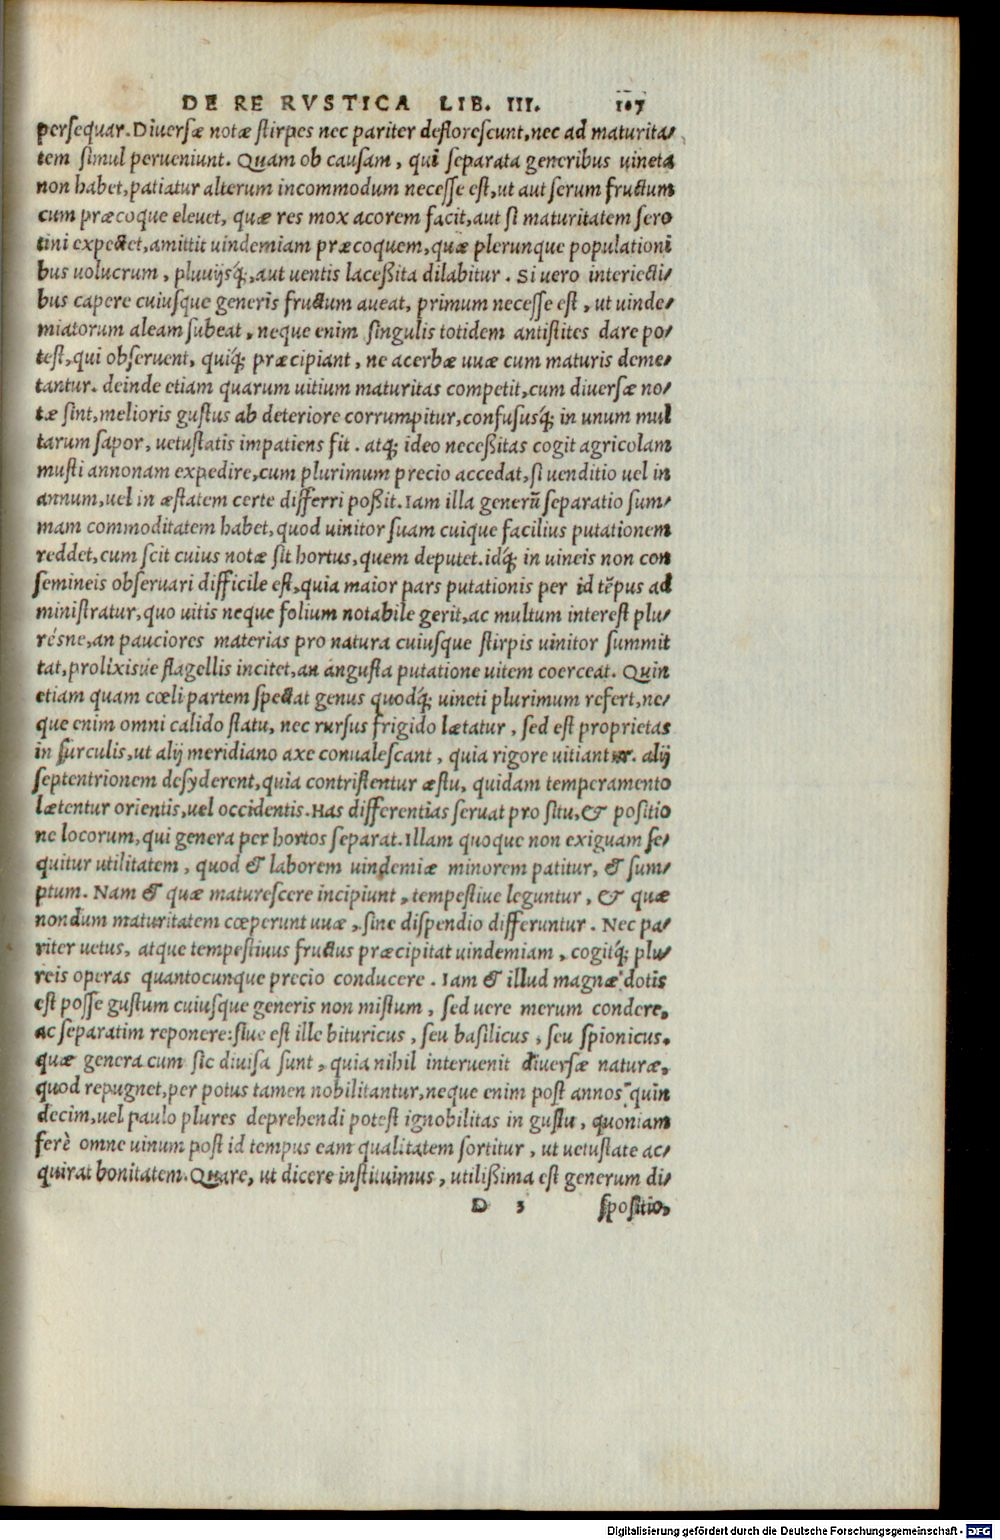 DE RE RVSTICA LIB. III. 107
persequar. Diuersæ notæ stirpes nec pariter deflorescunt, nec ad maturita/
tem simul perueniunt. Quam ob causam, qui separata generibus uineta
non habet, patiatur alterum incommodum necesse est, ut aut serum fructum
cum præcoque eleuet, quæ res mox acorem facit, aut si maturitatem sero
tini expectet, amittit uindemiam præcoquem, quæ plerunque populationi
bus uolucrum, pluuijsq́;, aut uentis laceßita dilabitur. Si uero interiecti/
bus capere cuiusque generis fructum aueat, primum necesse est, ut uinde/
miatorum aleam subeat, neque enim singulis totidem antistites dare po/
test, qui obseruent, quiq́; præcipiant, ne acerbæ uuæ cum maturis deme/
tantur. deinde etiam quarum uitium maturitas competit, cum diuersæ no/
tæ sint, melioris gustus ab deteriore corrumpitur, confususq́; in unum mul
tarum sapor, uetustatis impatiens fit. atq; ideo neceßitas cogit agricolam
musti annonam expedire, cum plurimum precio accedat, si uenditio uel in
annum, uel in æstatem certe differri poßit. Iam illa generū separatio sum/
mam commoditatem habet, quod uinitor suam cuique facilius putationem
reddet, cum scit cuius notæ sit hortus, quem deputet. idq́; in uineis non con
semineis obseruari difficile est, quia maior pars putationis per id tēpus ad
ministratur, quo uitis neque folium notabile gerit, ac multum interest plu/
résne, an pauciores materias pro natura cuiusque stirpis uinitor summit
tat, prolixisúe flagellis incitet, an angusta putatione uitem coerceat. Quin
etiam quam cœli partem spectat genus quodq́; uineti plurimum refert, ne/
que enim omni calido statu, nec rursus frigido lætatur, sed est proprietas
in surculis, ut alij meridiano axe conualescant, quia rigore uitiantur. alij
septentrionem desyderent, quia contristentur æstu, quidam temperamento
lætentur orientis, uel occidentis. Has differentias seruat pro situ, & positio
ne locorum, qui genera per hortos separat. Illam quoque non exiguam se/
quitur utilitatem, quod & laborem uindemiæ minorem patitur, & sum/
ptum. Nam & quæ maturescere incipiunt, tempestiue leguntur, & quæ
nondum maturitatem cœperunt uuæ, sine dispendio differuntur. Nec pa/
riter uetus, atque tempestiuus fructus præcipitat uindemiam, cogitq́; plu/
reis operas quantocunque precio conducere. Iam & illud magnæ dotis
est posse gustum cuiusque generis non mistum, sed uere merum condere,
ac separatim reponere: siue est ille bituricus, seu basilicus, seu spionicus.
quæ genera cum sic diuisa sunt, quia nihil interuenit diuersæ naturæ,
quod repugnet, per potus tamen nobilitantur, neque enim post annos quin
decim, uel paulo plures deprehendi potest ignobilitas in gustu, quoniam
ferè omne uinum post id tempus eam qualitatem sortitur, ut uetustate ac/
quirat bonitatem. Quare, ut dicere instituimus, utilißima est generum di/
D 3 spositio,
Digitalisierung gefördert durch die Deutsche Forschungsgemeinschaft - DFG